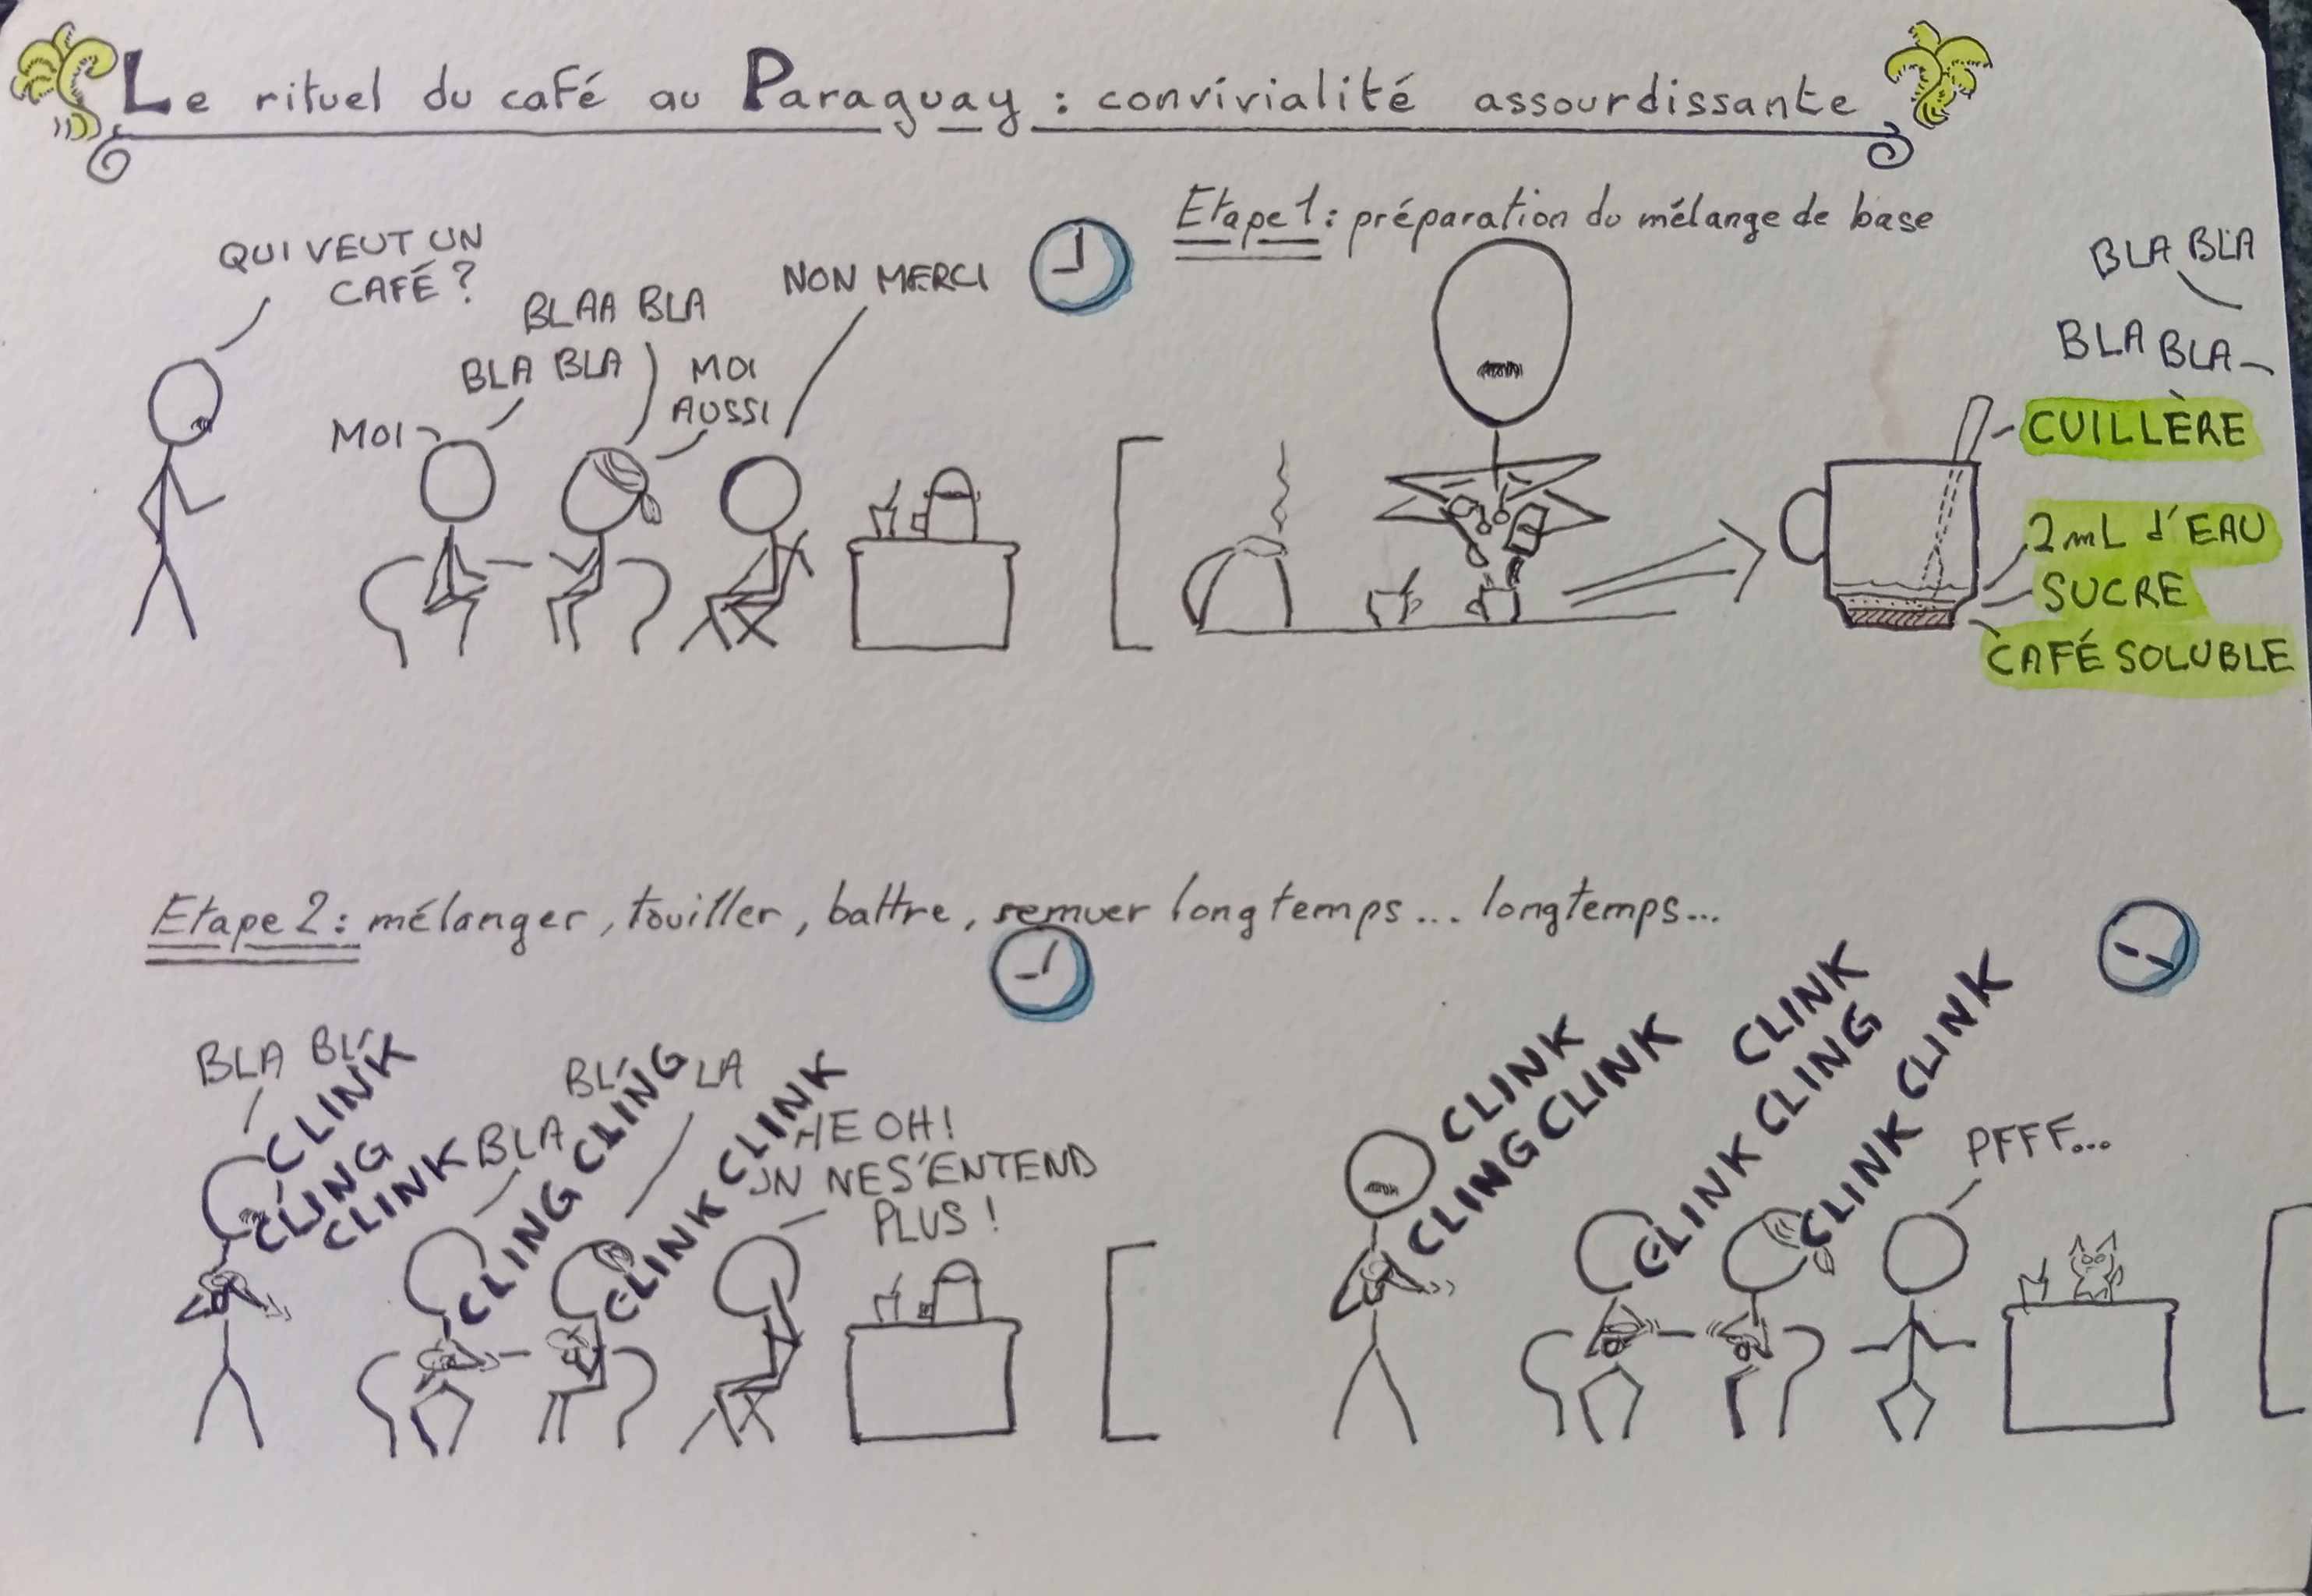 Le rituel du café au Paraguay : convivialité assourdissante
QUI VEUT UN
CAFÉ ?
MOI
BLA BLA
BLAA BLA
MOI
AUSSI
NON MERCI
Etape 1 : préparation du mélange de base
BLA BLA
BLA BLA
CUILLÈRE
2mL d'EAU
SUCRE
CAFÉ SOLUBLE
Etape 2 : mélanger, touiller, battre, remuer longtemps... longtemps...
BLA BL
CLINK
CLING
CLINK
BLA
BL LA
CLING CLING
CLINK CLINK
HE OH !
ON NE S'ENTEND
PLUS !
CLINK
CLING CLINK
CLINK
CLINK CLING
CLINK CLINK
PFFF...